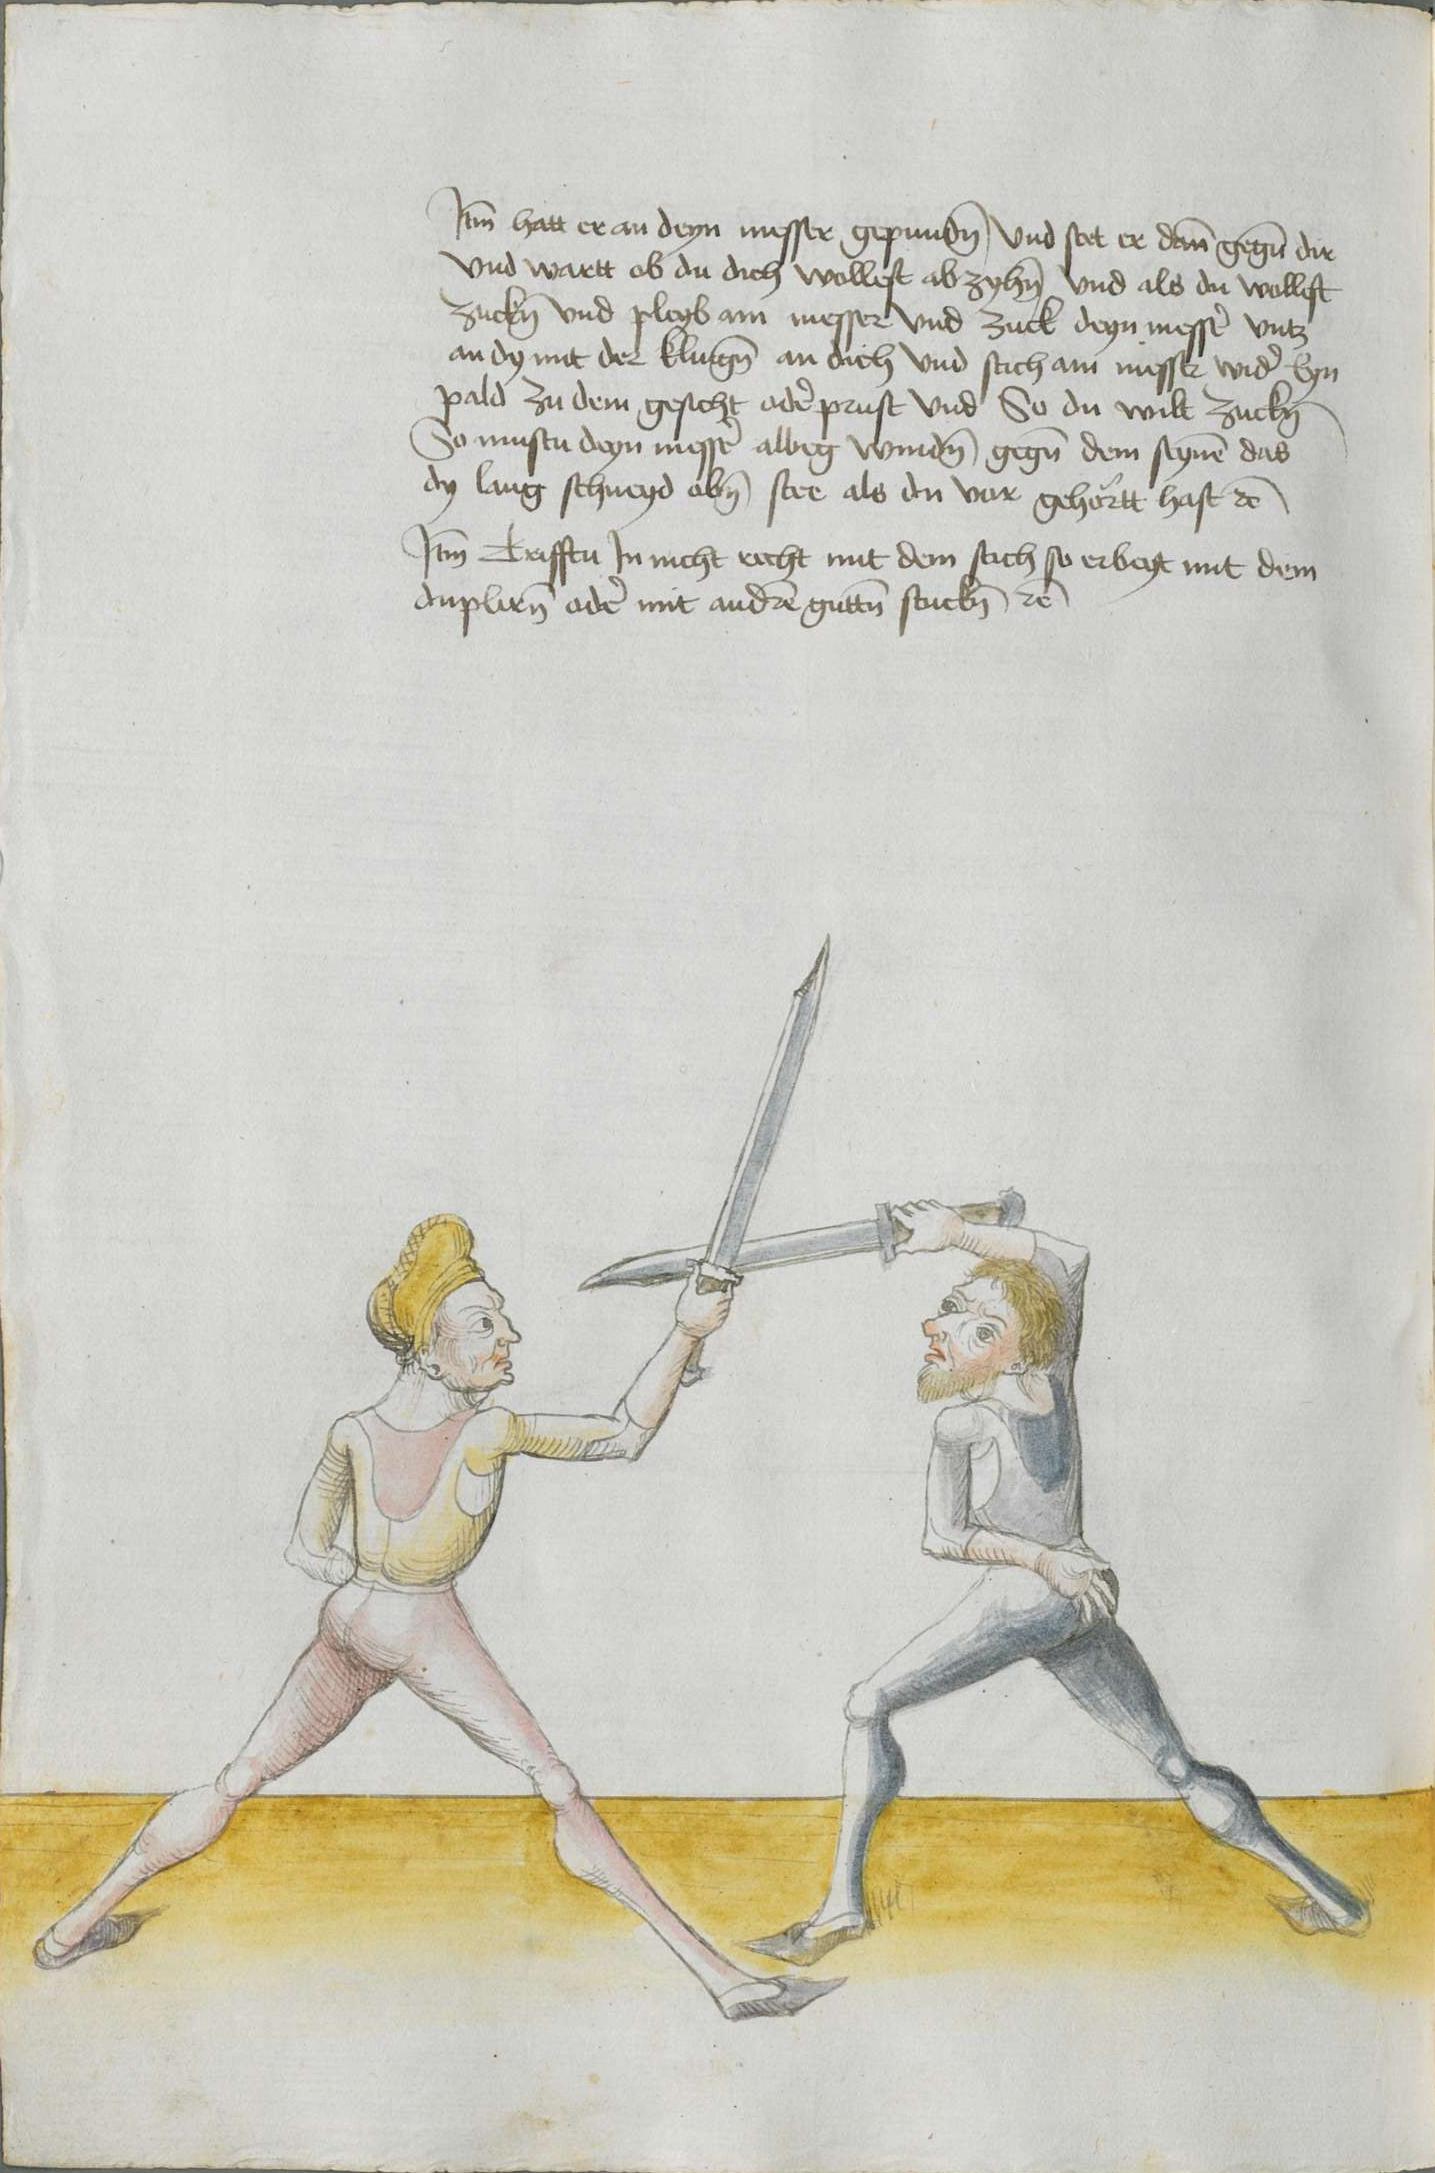 Itm̄ hatt er an deyn messer gepundn̄ Und stet er dan̄ gegn̄ dir
Und wartt ob du dich wollest abzyhn̄ Und als du wollest
zuckn̄ Und pleyb am messer Und zuck deyn messer̄ untz
an dy mit der klingn̄ an dich Und stich am messer wider̄ hyn
pald zu dem gesicht oder̄ prust Und So du wilt zuckn̄
So mustu deyn messer̄ albeg windn̄ gegn̄ dem seynē das
dy lang schneyd obn̄ stee als du vor gehörtt hast rē
Itm̄ Trifftu In nicht recht mit dem stich so erbeyt mit dem
duplirn̄ oder̄ mit andrē guttn̄ stuckn̄ rē